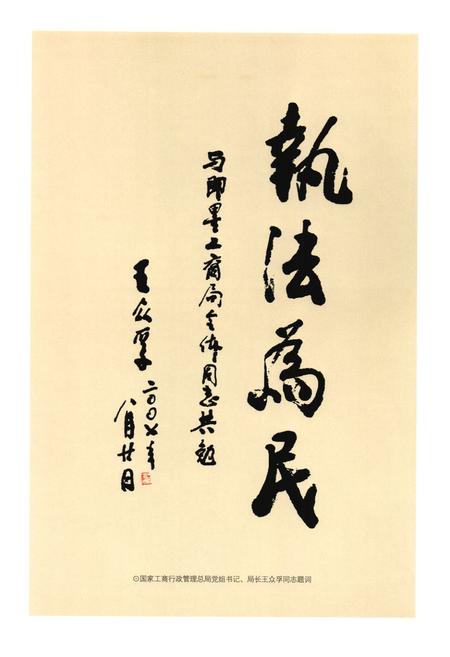 執法為民
与即墨工商局全体同志共勉
王众孚 二〇〇七年
八月廿日
⊙国家工商行政管理总局党组书记、局长王众孚同志题词